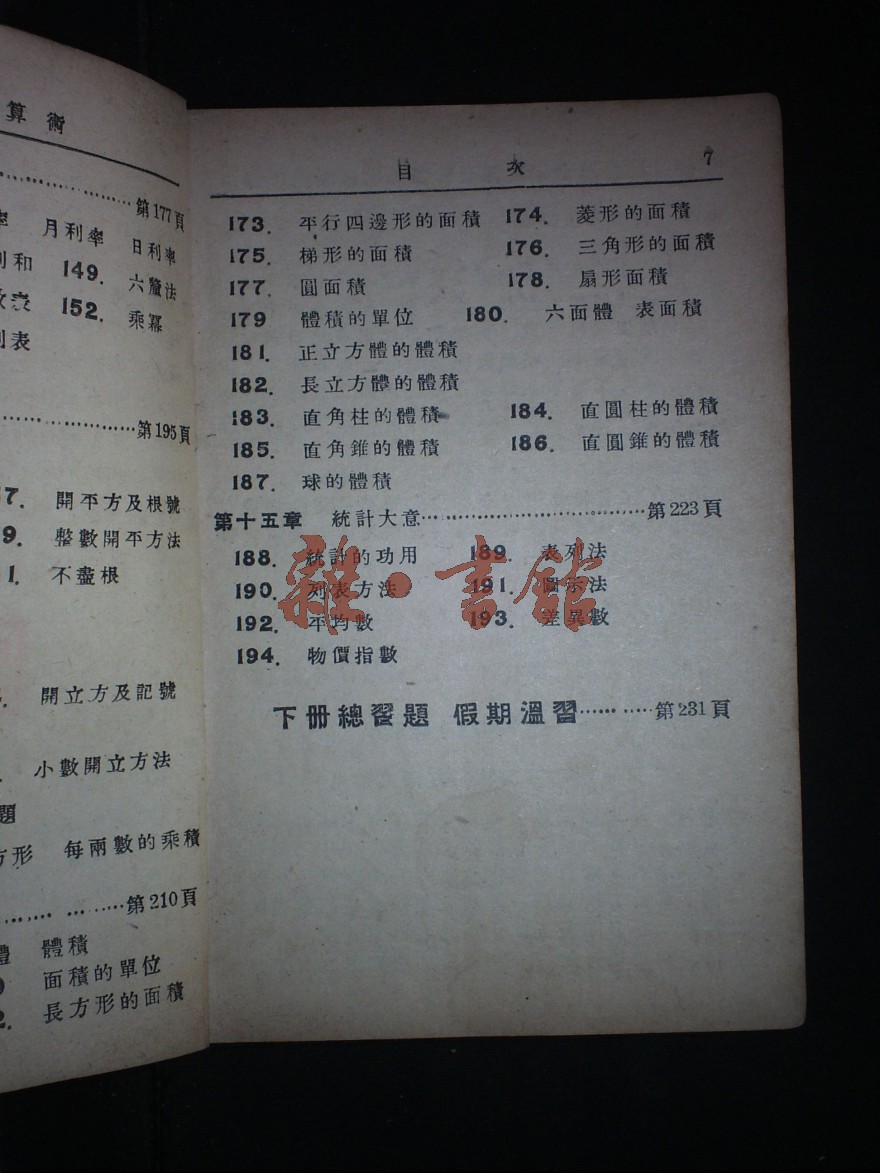 算術
第177頁
月利率 日利率
利和 149. 六釐法
152. 乘冪
列表
第195頁
開平方及根號
整數開平方法
不盡根
開立方及記號
小數開立方法
題
方形 每兩數的乘積
第210頁
體 體積
面積的單位
長方形的面積
目次 7
173. 平行四邊形的面積 174. 菱形的面積
175. 梯形的面積 176. 三角形的面積
177. 圓面積 178. 扇形面積
179 體積的單位 180. 六面體 表面積
181. 正立方體的體積
182. 長立方體的體積
183. 直角柱的體積 184. 直圓柱的體積
185. 直角錐的體積 186. 直圓錐的體積
187. 球的體積
第十五章 統計大意……………………第223頁
188. 統計的功用 189. 表列法
190. 列表方法 191. 圖示法
192. 平均數 193. 差異數
194. 物價指數
下册總習題 假期溫習…………第231頁
雜·書館